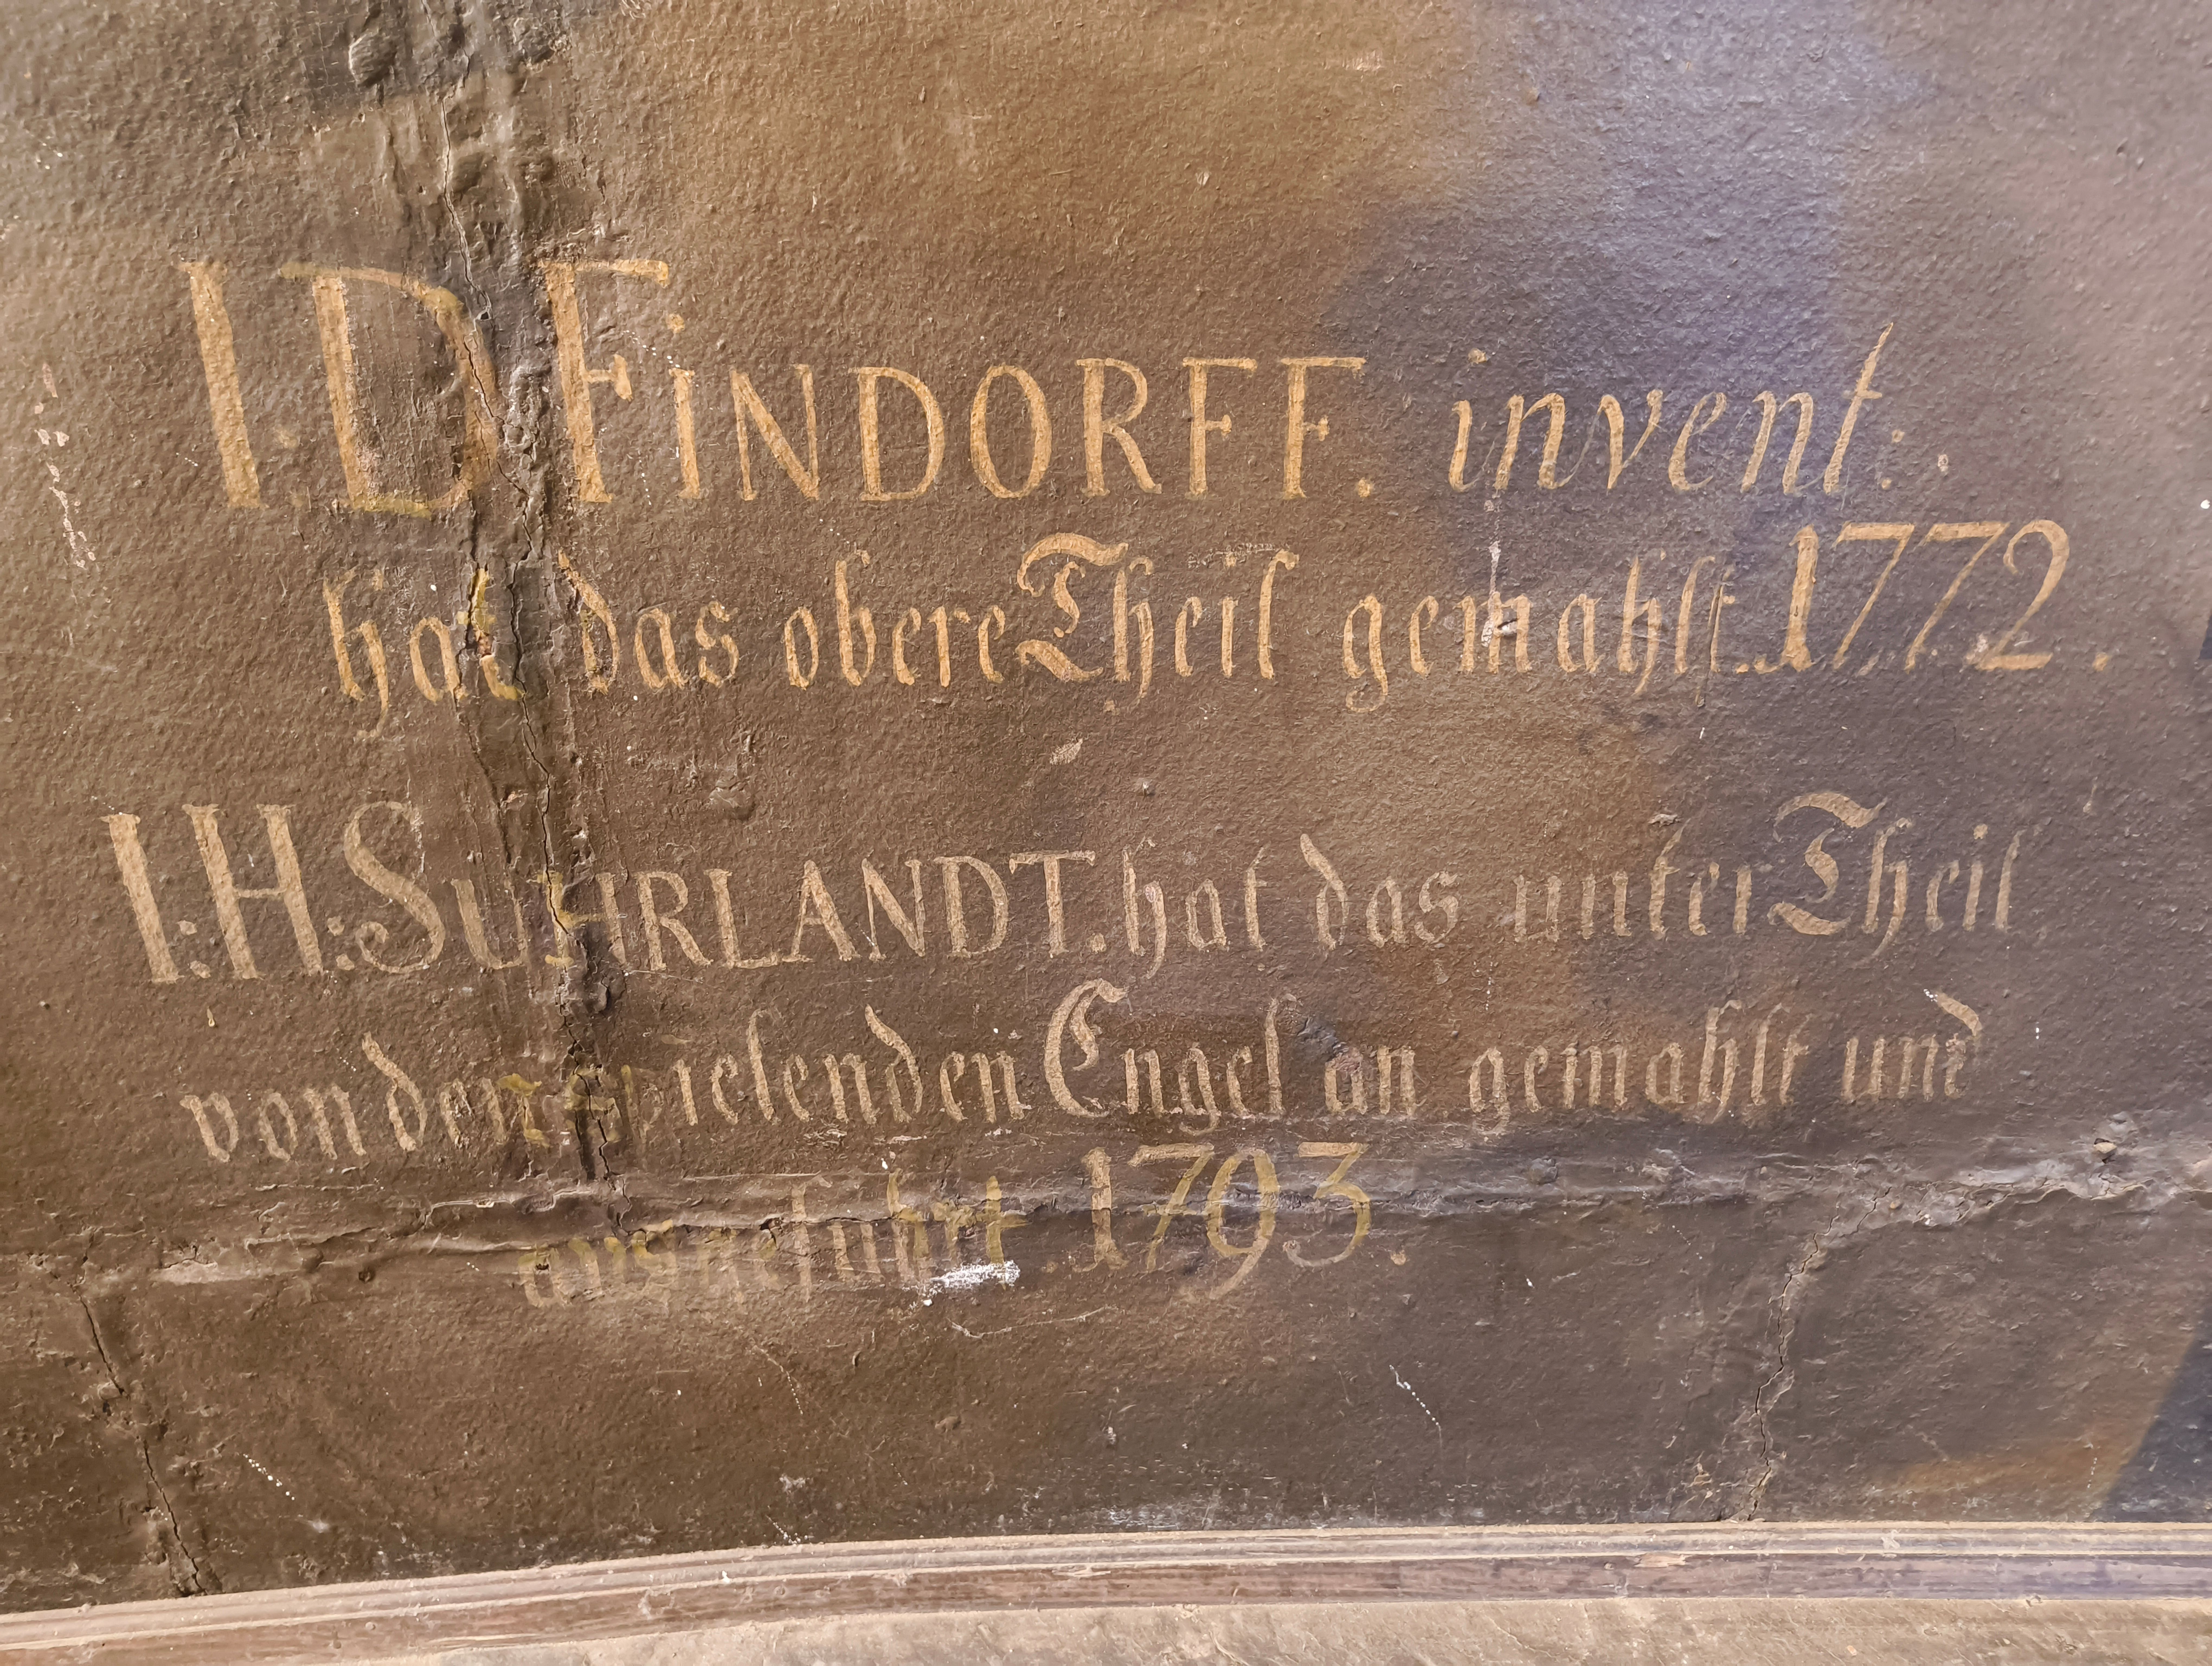 I. D. FINDORFF. invent:
hat das obere Theil gemahlt 1772.
I:H:SUHRLANDT. hat das unter Theil
von den spielenden Engel an gemahlt und
ausgefuhrt. 1793.